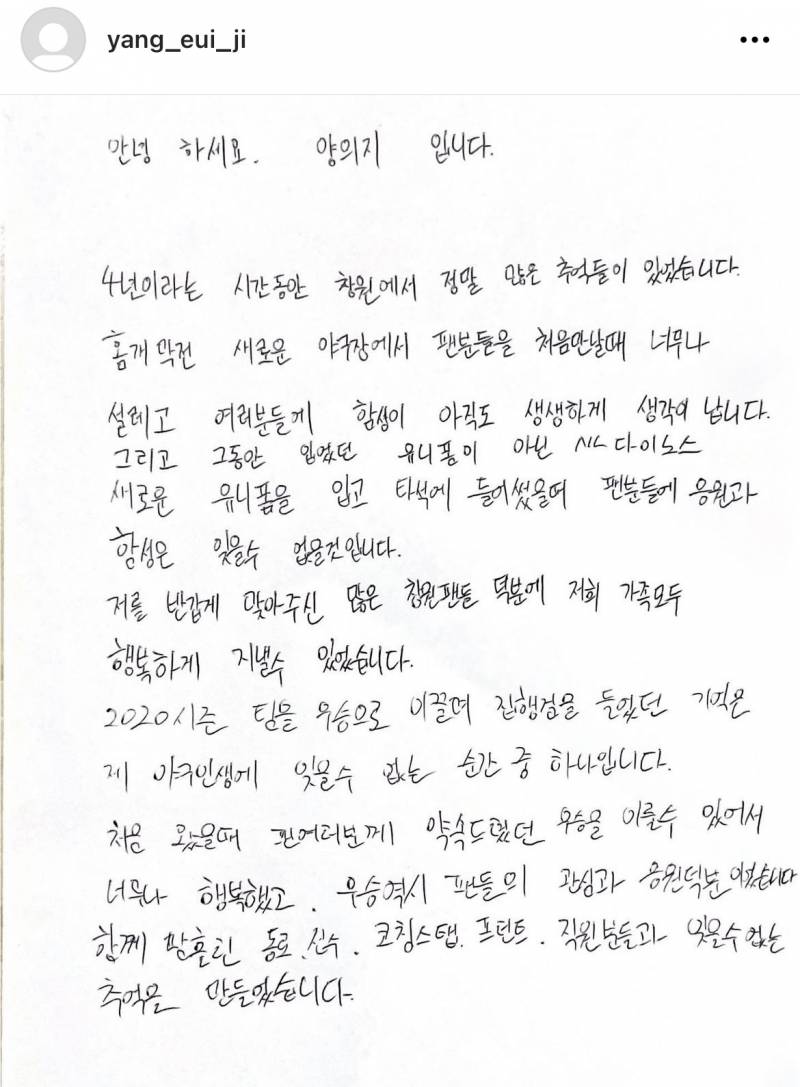 yang_eui_ji
안녕 하세요. 양의지 입니다.
4년이라는 시간동안 창원에서 정말 많은 추억들이 있었습니다.
홈개막전 새로운 야구장에서 팬분들을 처음만날때 너무나
설레고 여러분들에 함성이 아직도 생생하게 생각이 납니다.
그리고 그동안 입었던 유니폼이 아닌 NC 다이노스
새로운 유니폼을 입고 타석에 들어섰을때 팬분들에 응원과
함성은 잊을수 없을것입니다.
저를 반갑게 맞아주신 많은 창원팬들 덕분에 저희 가족모두
행복하게 지낼수 있었습니다.
2020시즌 팀을 우승으로 이끌며 집행검을 들었던 기억은
제 야구인생에 잊을수 없는 순간 중 하나입니다.
처음 왔을때 팬여러분께 약속드렸던 우승을 이룰수 있어서
너무나 행복했고. 우승역시 팬들의 관심과 응원덕분이었습니다
함께 땀흘린 동료.선수. 코칭스탭. 프런트. 직원분들과 잊을수없는
추억을 만들었습니다.